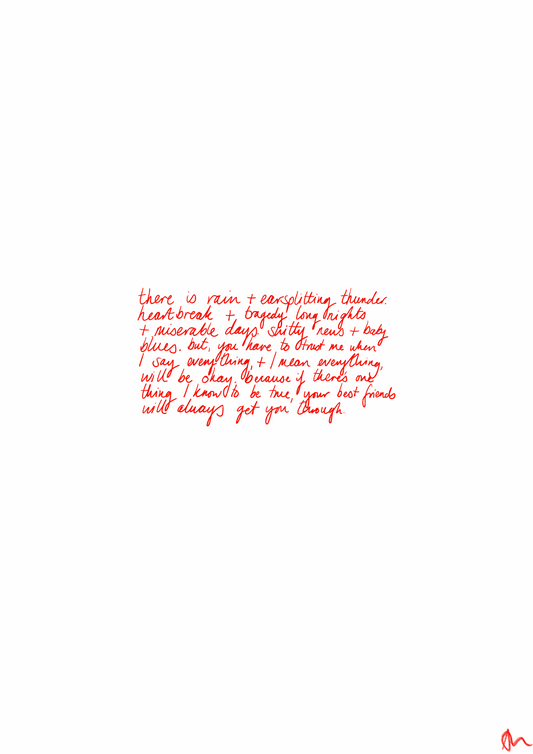 there is rain + earsplitting thunder.
heartbreak + tragedy. long nights
+ miserable days. shitty news + baby
blues. but, you have to trust me when
I say everything, + I mean everything,
will be okay. because if there's one
thing I know to be true, your best friends
will always get you through.